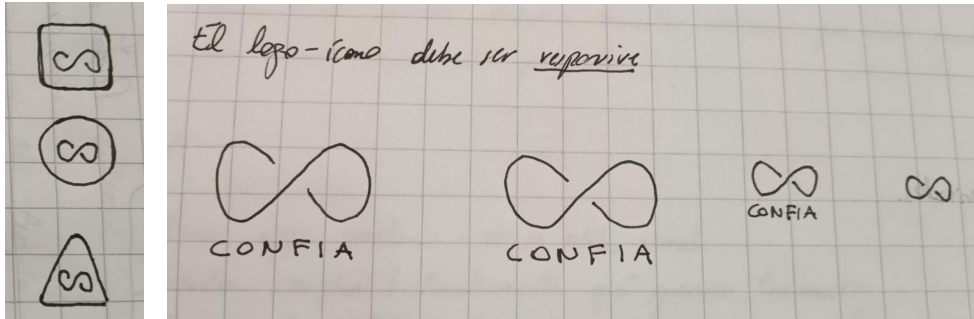 El logo-icono debe ser responsive
CONFIA
CONFIA
CONFIA